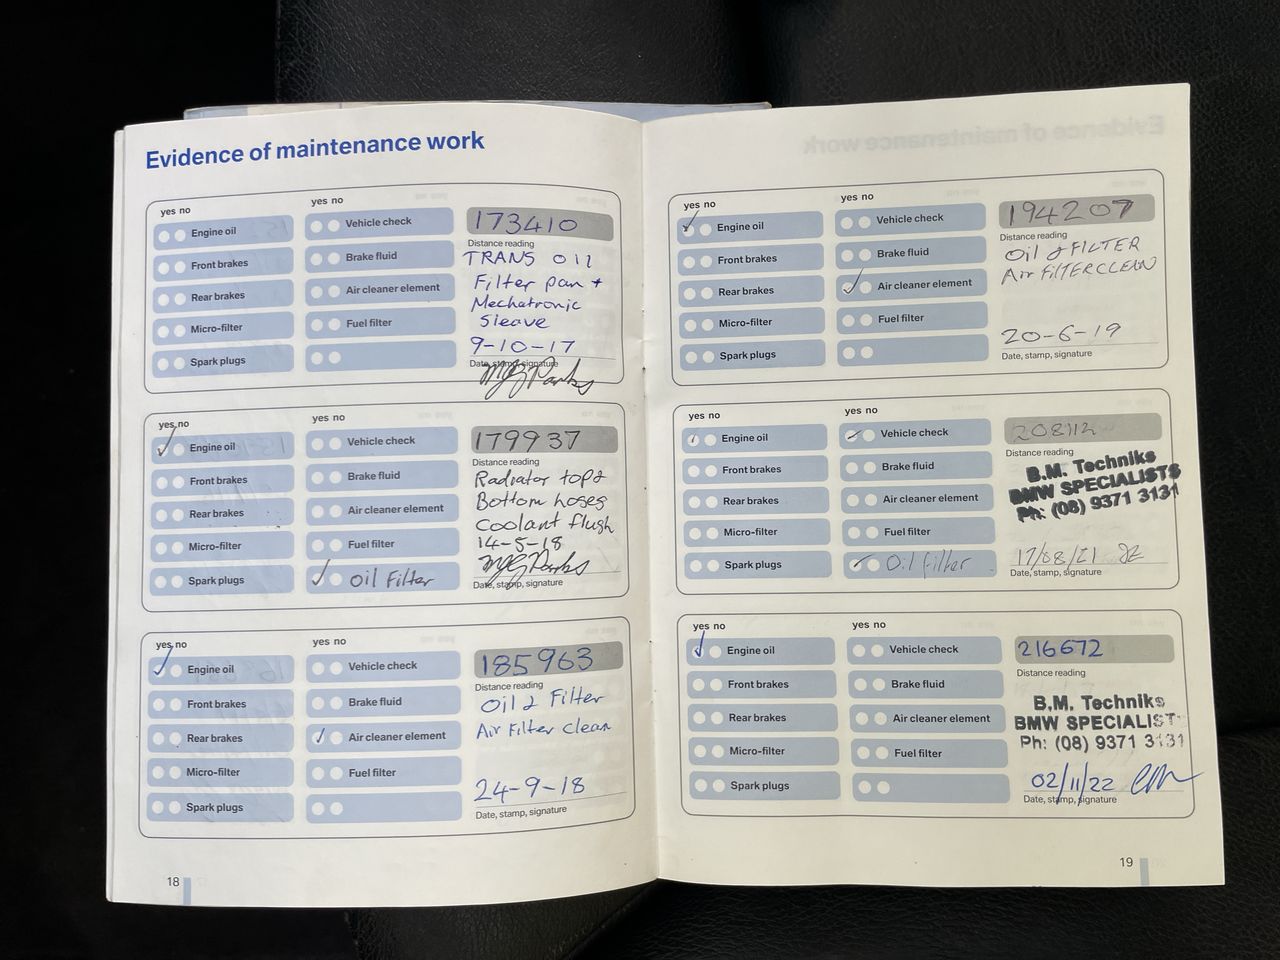 Evidence of maintenance work
yes no
yes no
Engine oil
Vehicle check
173410
Distance reading
Front brakes
Brake fluid
TRANS OIL
Rear brakes
Air cleaner element
Filter pan +
Mechatronic
Micro-filter
Fuel filter
Sleave
Spark plugs
9-10-17
Date, stamp, signature
yes no
yes no
Engine oil
Vehicle check
179937
Distance reading
Front brakes
Brake fluid
Radiator top &
Bottom hoses
Rear brakes
Air cleaner element
Coolant flush
Micro-filter
Fuel filter
14-5-18
Spark plugs
Oil Filter
Date, stamp, signature
yes no
yes no
Engine oil
Vehicle check
185963
Distance reading
Front brakes
Brake fluid
Oil & Filter
Rear brakes
Air cleaner element
Air Filter Clean
Micro-filter
Fuel filter
24-9-18
Spark plugs
Date, stamp, signature
18
yes no
yes no
Engine oil
Vehicle check
194207
Distance reading
Front brakes
Brake fluid
Oil & FILTER
Rear brakes
Air cleaner element
Air FILTER CLEAN
Micro-filter
Fuel filter
20-6-19
Spark plugs
Date, stamp, signature
yes no
yes no
Engine oil
Vehicle check
208112
Distance reading
Front brakes
Brake fluid
B.M. Techniks
BMW SPECIALISTS
Rear brakes
Air cleaner element
Ph: (08) 9371 3131
Micro-filter
Fuel filter
Spark plugs
Oil filter
17/08/21
Date, stamp, signature
yes no
yes no
Engine oil
Vehicle check
216672
Distance reading
Front brakes
Brake fluid
B.M. Techniks
Rear brakes
Air cleaner element
BMW SPECIALIST
Ph: (08) 9371 3131
Micro-filter
Fuel filter
Spark plugs
02/11/22
Date, stamp, signature
19